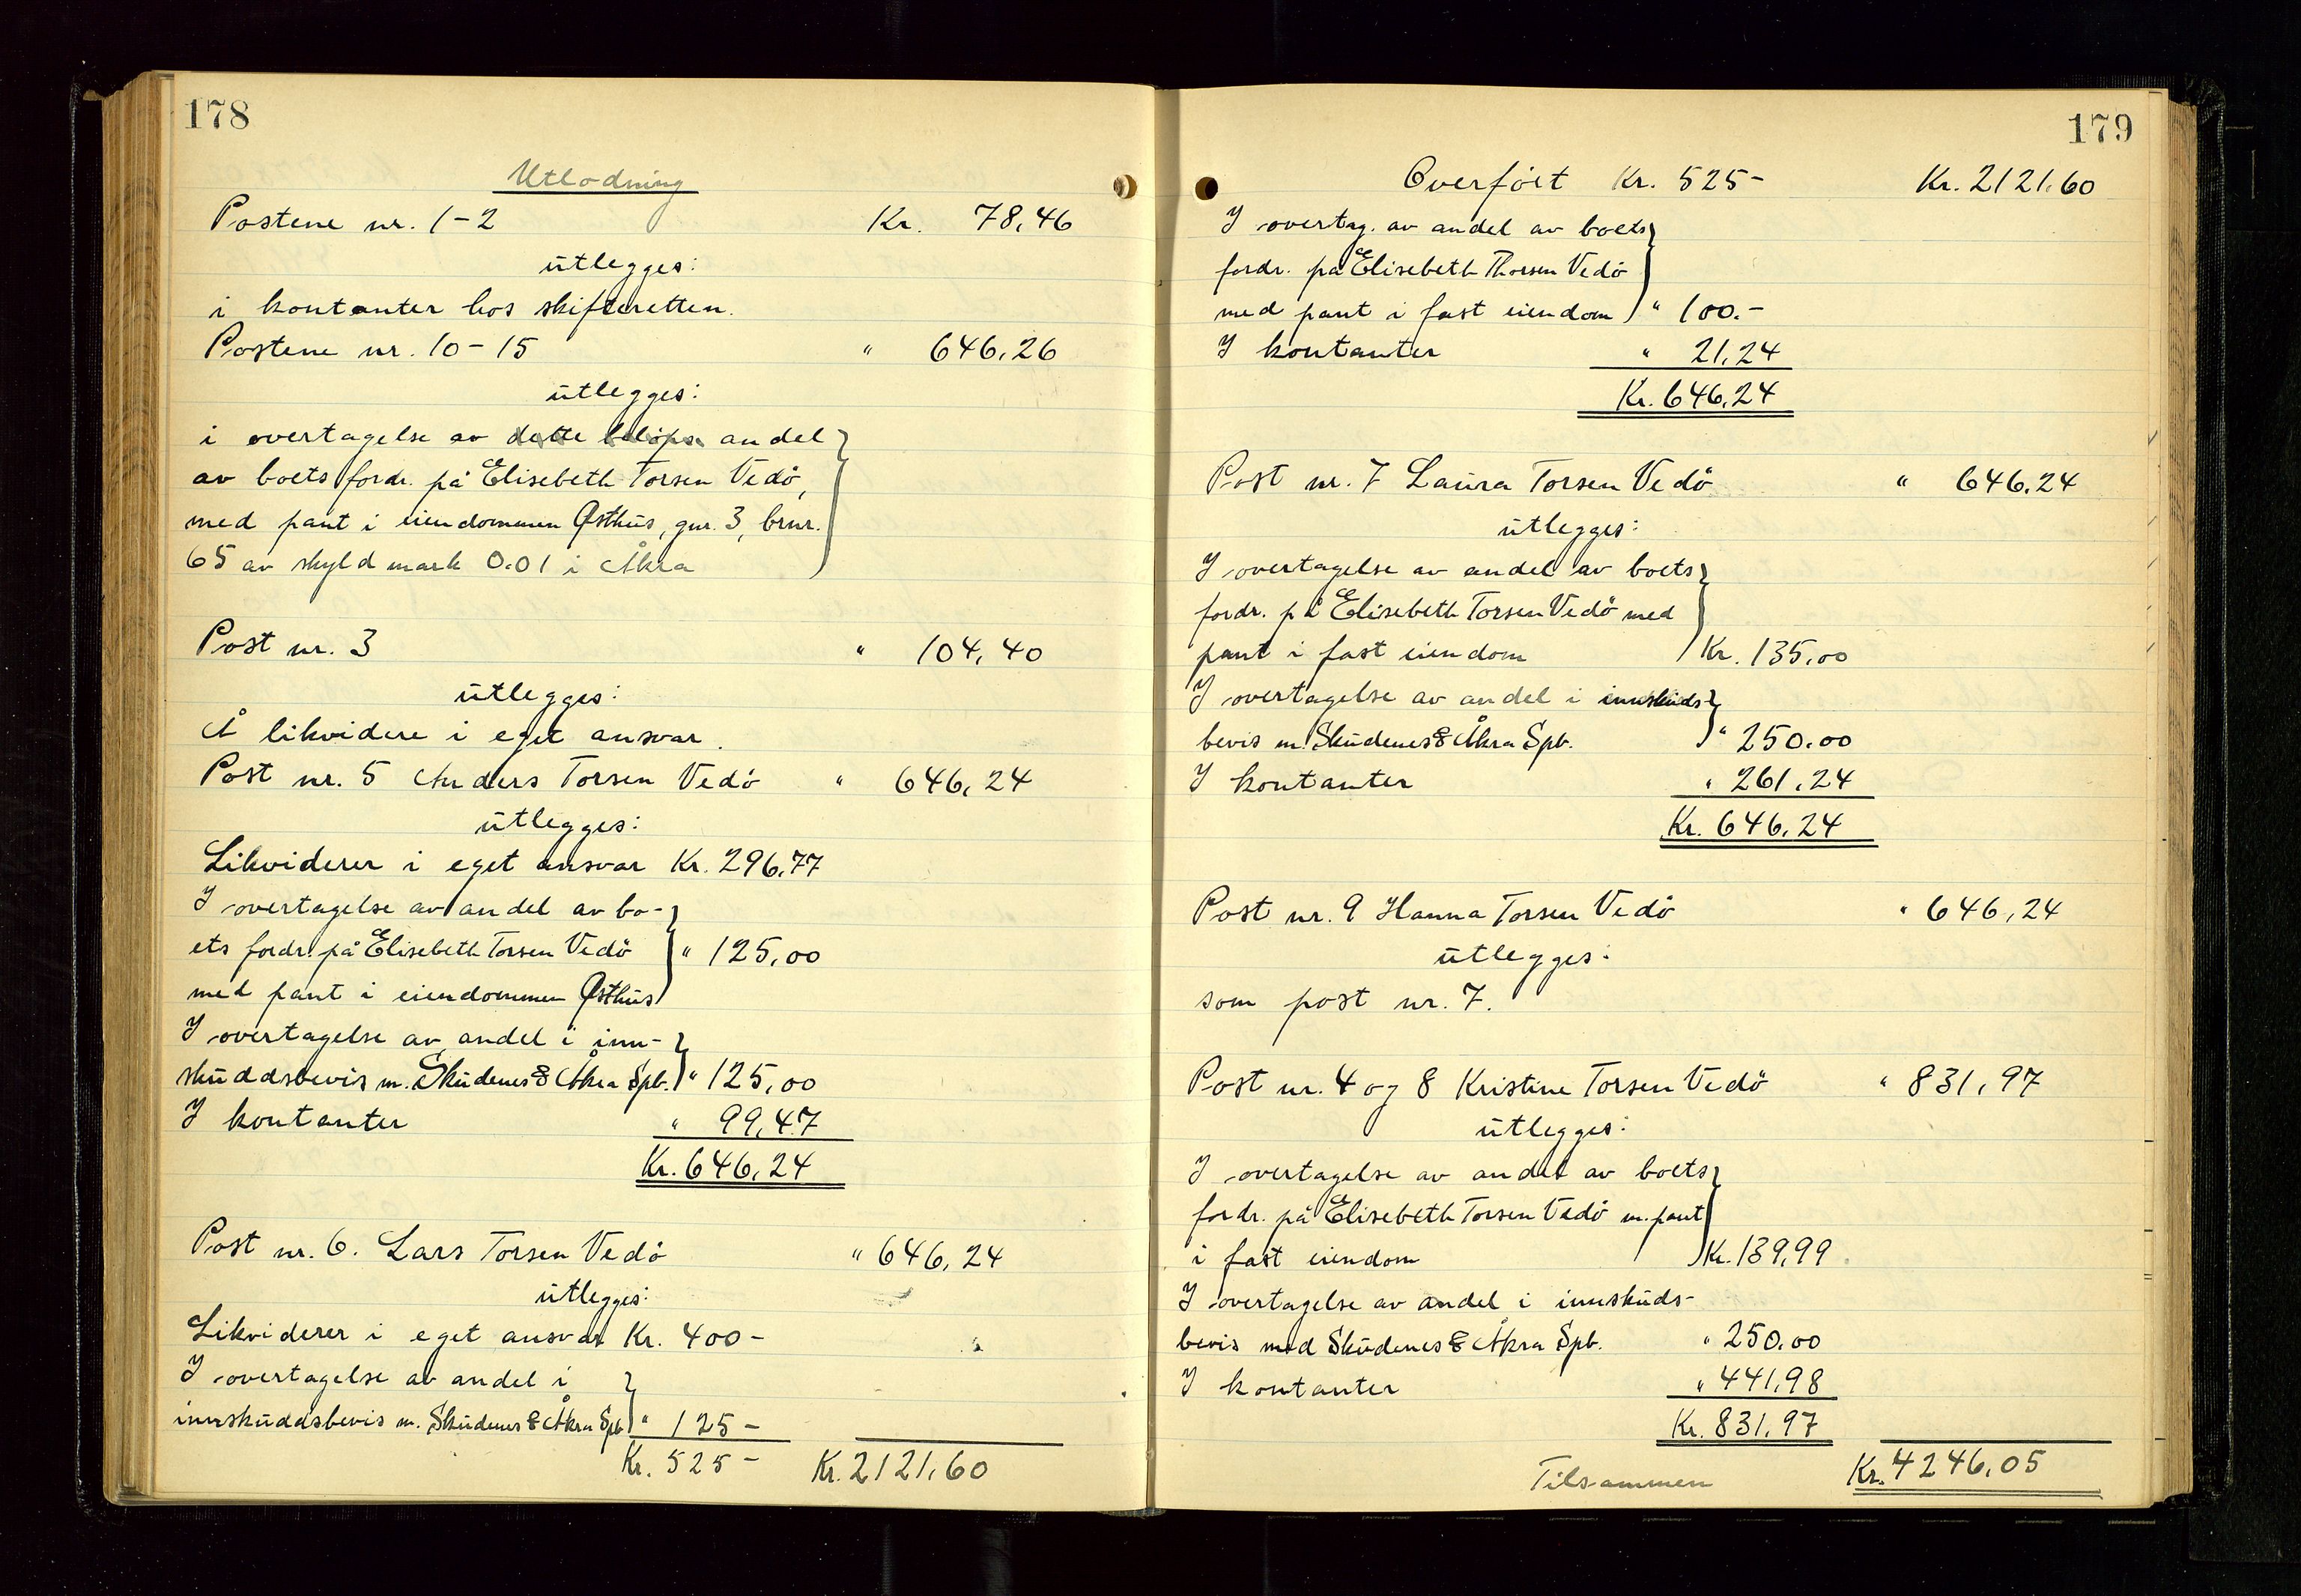 178
Utlodning
Postene nr. 1-2 Kr. 78,46
utlegges:
i kontanter hos skifteretten.
Postene nr. 10-15 " 646,26
utlegges:
i overtagelse av dette beløps andel
av boets fordr. på Elisebeth Torsen Vedö,
med pant i eiendommen Østhus, gnr. 3, brnr.
65 av skyld mark 0.01 i Åkra
Post nr. 3 " 104,40
utlegges:
Å likvidere i eget ansvar.
Post nr. 5 Anders Torsen Vedö " 646,24
utlegges:
Likviderer i eget ansvar Kr. 296,77
I overtagelse av andel av bo-
ets fordr. på Elisebeth Torsen Vedö " 125,00
med pant i eiendommen Østhus
I overtagelse av andel i inn-
skuddsbevis m. Skudenes & Åkra Spb. " 125,00
I kontanter " 99,47
Kr. 646,24
Post nr. 6. Lars Torsen Vedö " 646,24
utlegges:
Likviderer i eget ansvar Kr. 400-
I overtagelse av andel i
innskuddsbevis m. Skudenes & Åkra Spb " 125-
Kr. 525- Kr. 2121,60
179
Overfört Kr. 525- Kr. 2121,60
I overtag. av andel av boets
fordr. på Elisebeth Thorsen Vedö
med pant i fast eiendom " 100.-
I kontanter " 21,24
Kr. 646,24
Post nr. 7 Laura Torsen Vedö " 646,24
utlegges:
I overtagelse av andel av boets
fordr. på Elisebeth Torsen Vedö med
pant i fast eiendom Kr. 135,00
I overtagelse av andel i innskuds-
bevis m. Skudenes & Åkra Spb. " 250.00
I kontanter " 261,24
Kr. 646,24
Post nr. 9 Hanna Torsen Vedö " 646,24
utlegges:
som post nr. 7.
Post nr. 4 og 8 Kristine Torsen Vedö " 831,97
utlegges:
I overtagelse av andel av boets
fordr. på Elisebeth Torsen Vedö m. pant
i fast eiendom Kr. 139,99
I overtagelse av andel i innskuds-
bevis med Skudenes & Åkra Spb. " 250.00
I kontanter " 441,98
Kr. 831,97
Tilsammen Kr. 4246,05